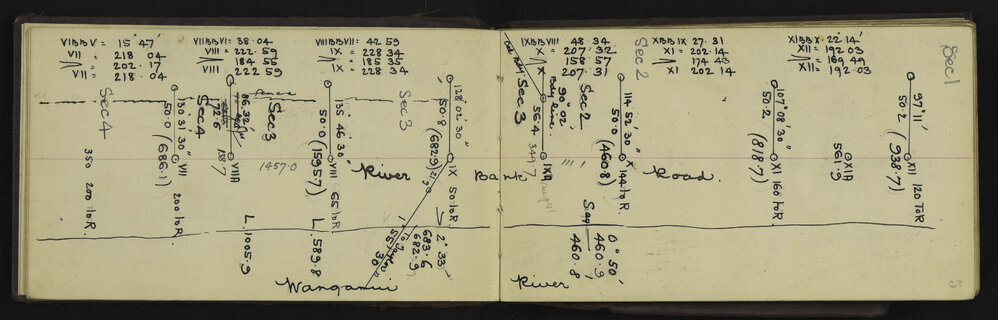 VIIBBV = 15° 47'
VII = 218 04
V = 202 . 17
VII = 218 . 04
VIIIBBV = 38 . 04
VIII = 222 . 59
= 184 55
VIII 222 59
VIIIBBVII = 42 59
IX = 228 34
= 185 35
IX = 228 34
IXBBVIII 48 34
X = 207 . 32
= 158 . 57
X 207 . 31
XBBIX 27 . 31
XI = 202 . 14
= 174 43
XI 202 14
XIBBX 22 . 14'
XII = 192 03
= 169 49
XII = 192 . 03
Sec 4
350
200 to R
130° 31' 30"
50.0
(686.1)
VII
200 to R
Sec 4
72.6
86° 32'
138.7
VIIIA
fence
Sec 3
1457.0
L. 1005.9
135 46' 30"
50.0
(1595.7)
VIII
65 to R
L. 589.8
Sec 3
128° 02' 30"
50.8
(682.9)
IX
50 to R
2° 33'
683.6
682.9
55° 30"
River Bank Road.
Wanganui River
Sec 3
56.4
90° 02'
Bdy line.
IXA
349.7
Sec 2
Sec 2
114° 52' 30"
50.0
(460.8)
X
144 to R.
Sag
0° 50'
460.9
460.8
107° 08' 30"
50.2
(818.7)
XI
160 to R
XIIA
561.9
Sec 1
97° 11'
50.2
(938.7)
XII
120 To R